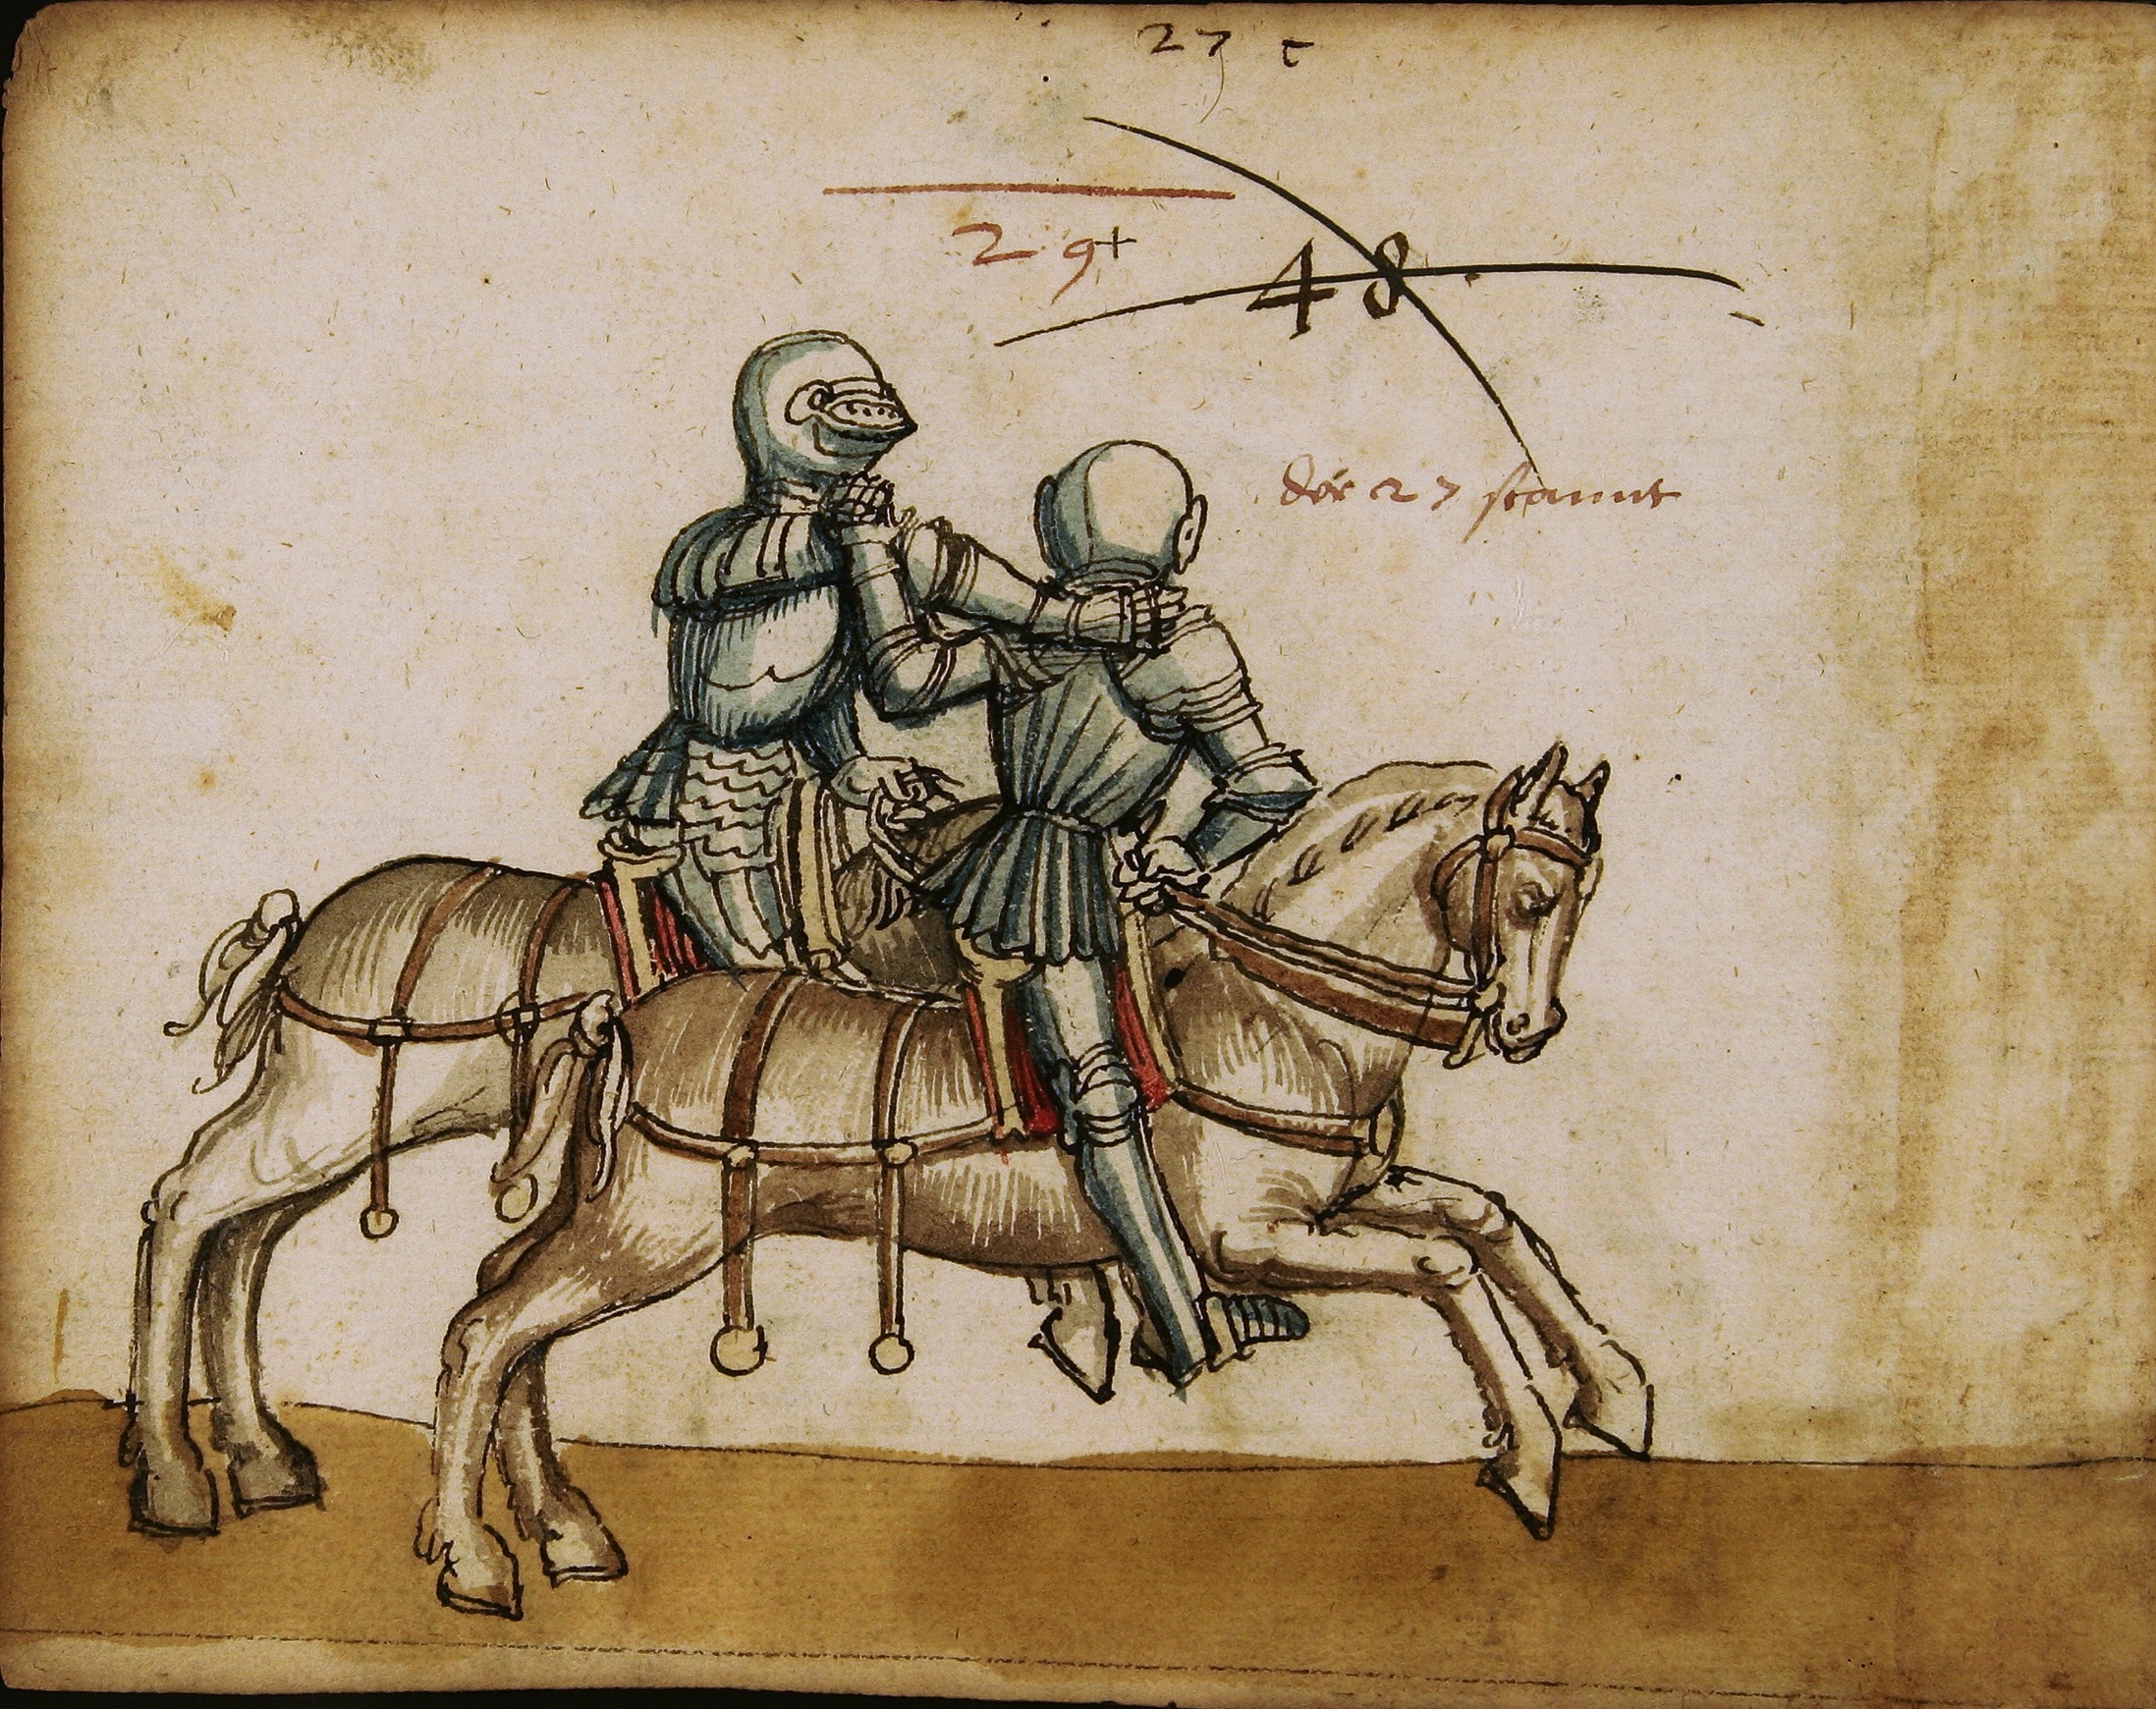 27
29+
48
der 27 stannt